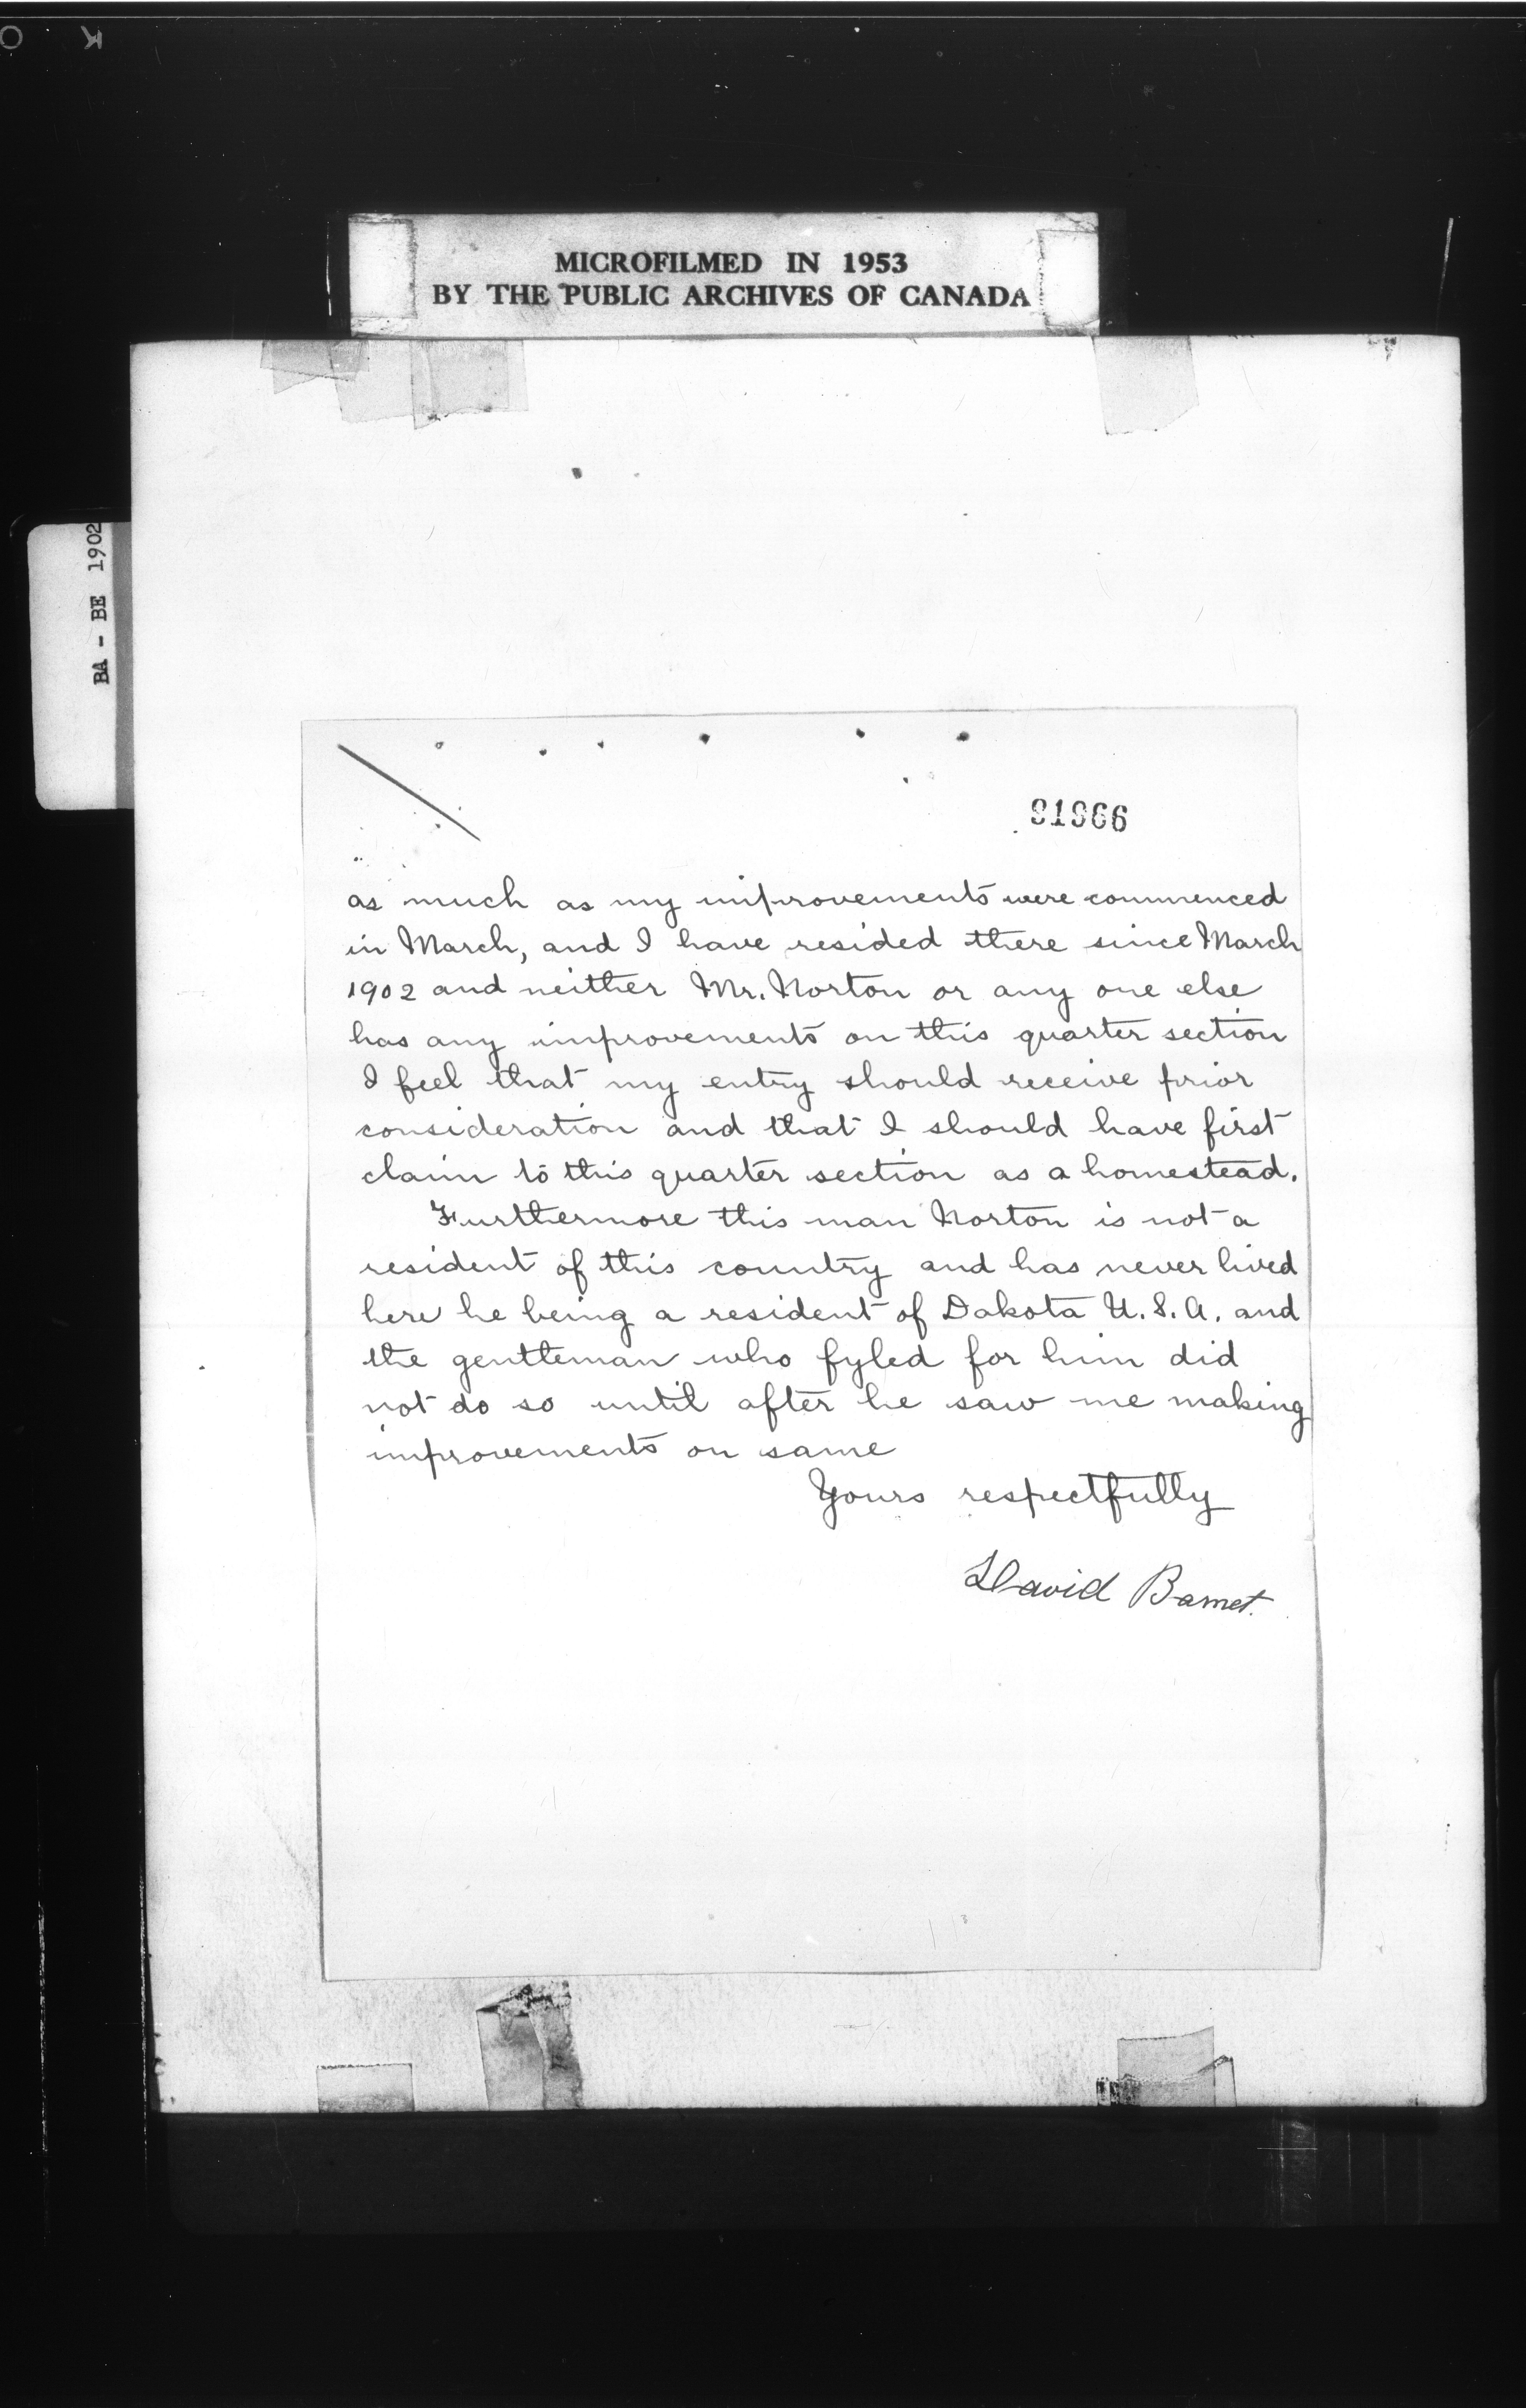 K O
MICROFILMED IN 1953
BY THE PUBLIC ARCHIVES OF CANADA
BA - BE 1902
91966
as much as my improvements were commenced
in March, and I have resided there since March
1902 and neither Mr. Norton or any one else
has any improvements on this quarter section
I feel that my entry should receive prior
consideration and that I should have first
claim to this quarter section as a homestead.
Furthermore this man Norton is not a
resident of this country and has never lived
here he being a resident of Dakota U.S.A. and
the gentleman who fyled for him did
not do so until after he saw me making
improvements on same
Yours respectfully
David Barnet.